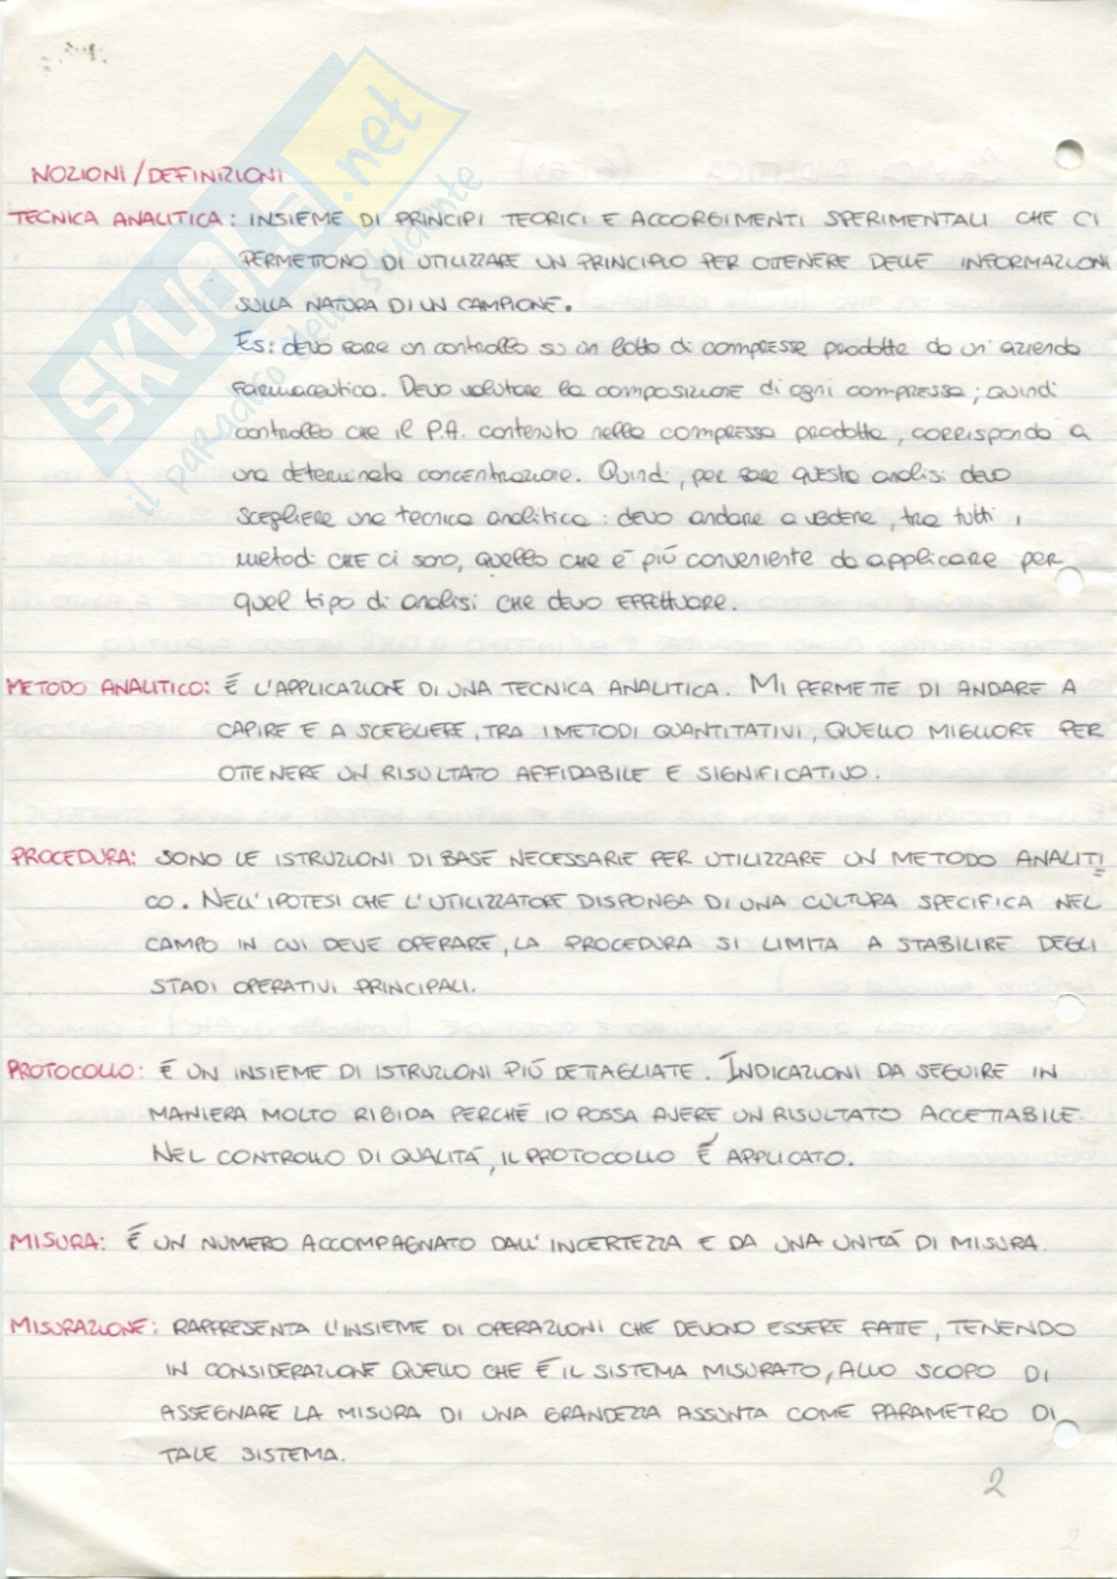 NOZIONI/DEFINIZIONI
TECNICA ANALITICA: INSIEME DI PRINCIPI TEORICI E ACCORGIMENTI SPERIMENTALI CHE CI
PERMETTONO DI UTILIZZARE UN PRINCIPIO PER OTTENERE DELLE INFORMAZIONI
SULLA NATURA DI UN CAMPIONE.
Es: devo fare un controllo su un lotto di compresse prodotte da un'azienda
farmaceutica. Devo valutare la composizione di ogni compressa; quindi
controllo che il P.A. contenuto nella compressa prodotta, corrisponda a
una determinata concentrazione. Quindi, per fare questa analisi devo
scegliere una tecnica analitica: devo andare a vedere, tra tutti i
metodi che ci sono, quello che è più conveniente da applicare per
quel tipo di analisi che devo effettuare.
METODO ANALITICO: È L'APPLICAZIONE DI UNA TECNICA ANALITICA. MI PERMETTE DI ANDARE A
CAPIRE E A SCEGLIERE, TRA I METODI QUANTITATIVI, QUELLO MIGLIORE PER
OTTENERE UN RISULTATO AFFIDABILE E SIGNIFICATIVO.
PROCEDURA: SONO LE ISTRUZIONI DI BASE NECESSARIE PER UTILIZZARE UN METODO ANALITI
CO. NELL'IPOTESI CHE L'UTILIZZATORE DISPONGA DI UNA CULTURA SPECIFICA NEL
CAMPO IN CUI DEVE OPERARE, LA PROCEDURA SI LIMITA A STABILIRE DEGLI
STADI OPERATIVI PRINCIPALI.
PROTOCOLLO: È UN INSIEME DI ISTRUZIONI PIÙ DETTAGLIATE. INDICAZIONI DA SEGUIRE IN
MANIERA MOLTO RIGIDA PERCHÉ IO POSSA AVERE UN RISULTATO ACCETTABILE.
NEL CONTROLLO DI QUALITÀ, IL PROTOCOLLO È APPLICATO.
MISURA: È UN NUMERO ACCOMPAGNATO DALL'INCERTEZZA E DA UNA UNITÀ DI MISURA.
MISURAZIONE: RAPPRESENTA L'INSIEME DI OPERAZIONI CHE DEVONO ESSERE FATTE, TENENDO
IN CONSIDERAZIONE QUELLO CHE È IL SISTEMA MISURATO, ALLO SCOPO DI
ASSEGNARE LA MISURA DI UNA GRANDEZZA ASSUNTA COME PARAMETRO DI
TALE SISTEMA.
2
SKUOLA.net
il paradiso dello studente